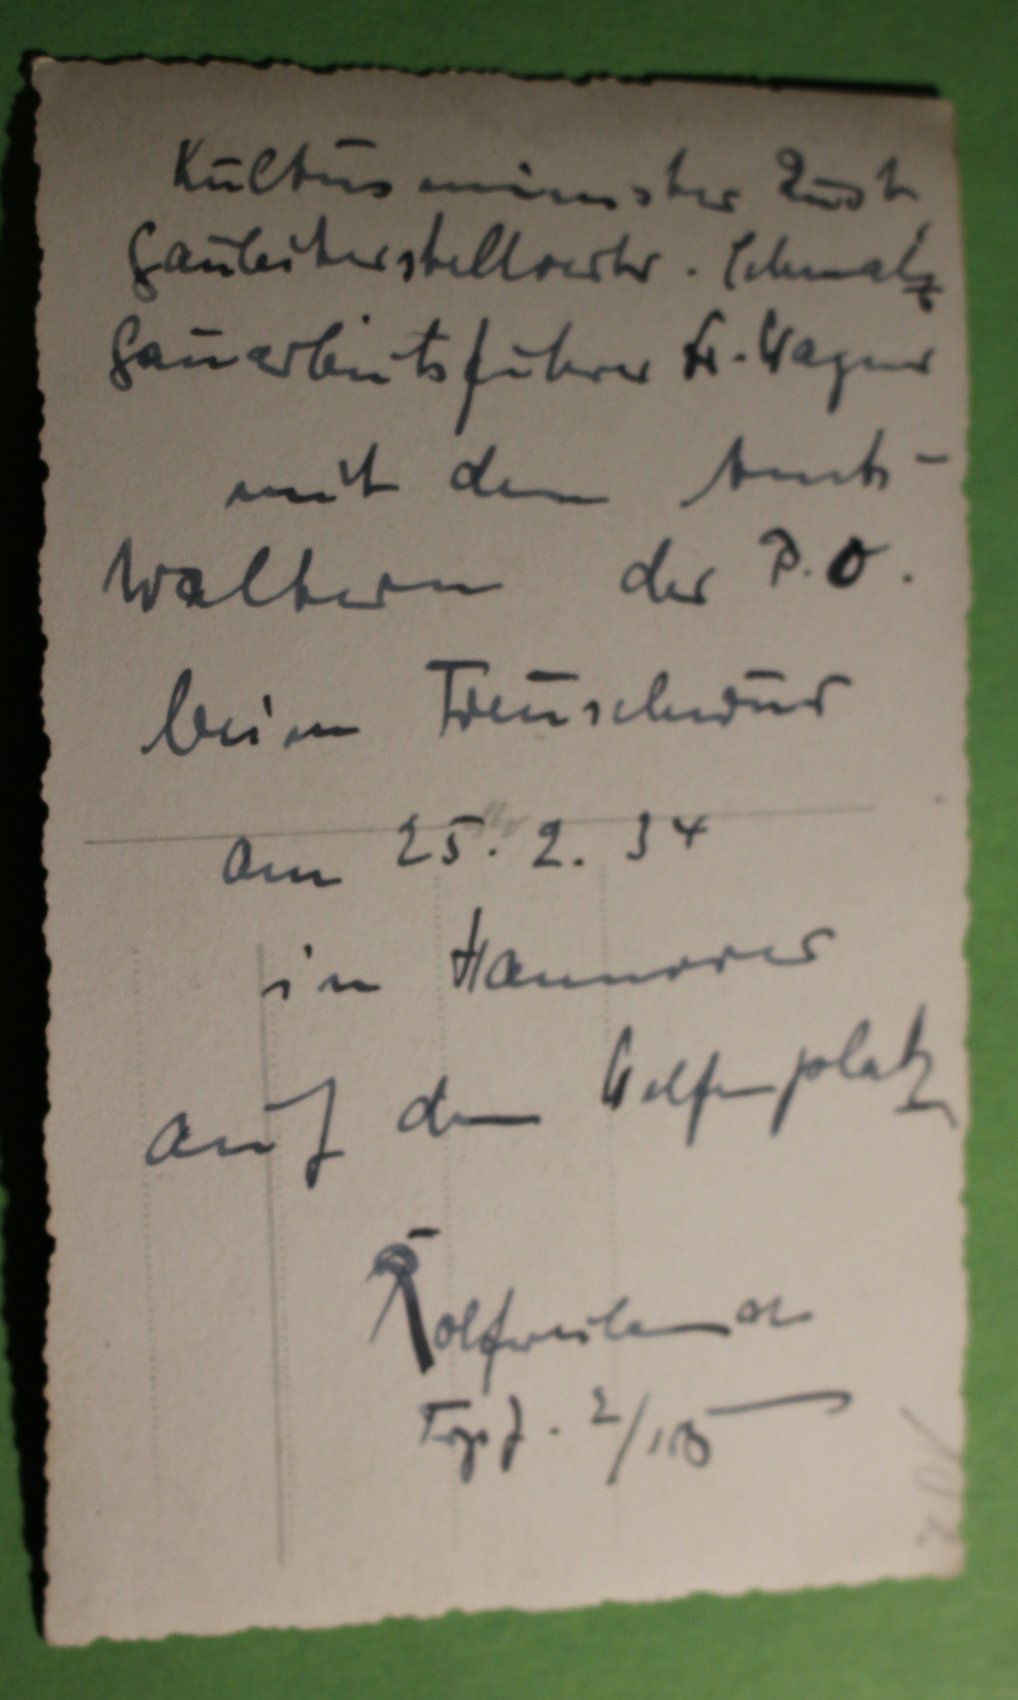 Kultusminister Rust
Gauleiterstellvertr. Schmalz
Gauarbeitsführer Dr. Wagner
mit den Amts-
waltern der P.O.
beim Treuschwur
am 25. 2. 34
in Hannover
auf dem Welfenplatz
Trpf. 2/